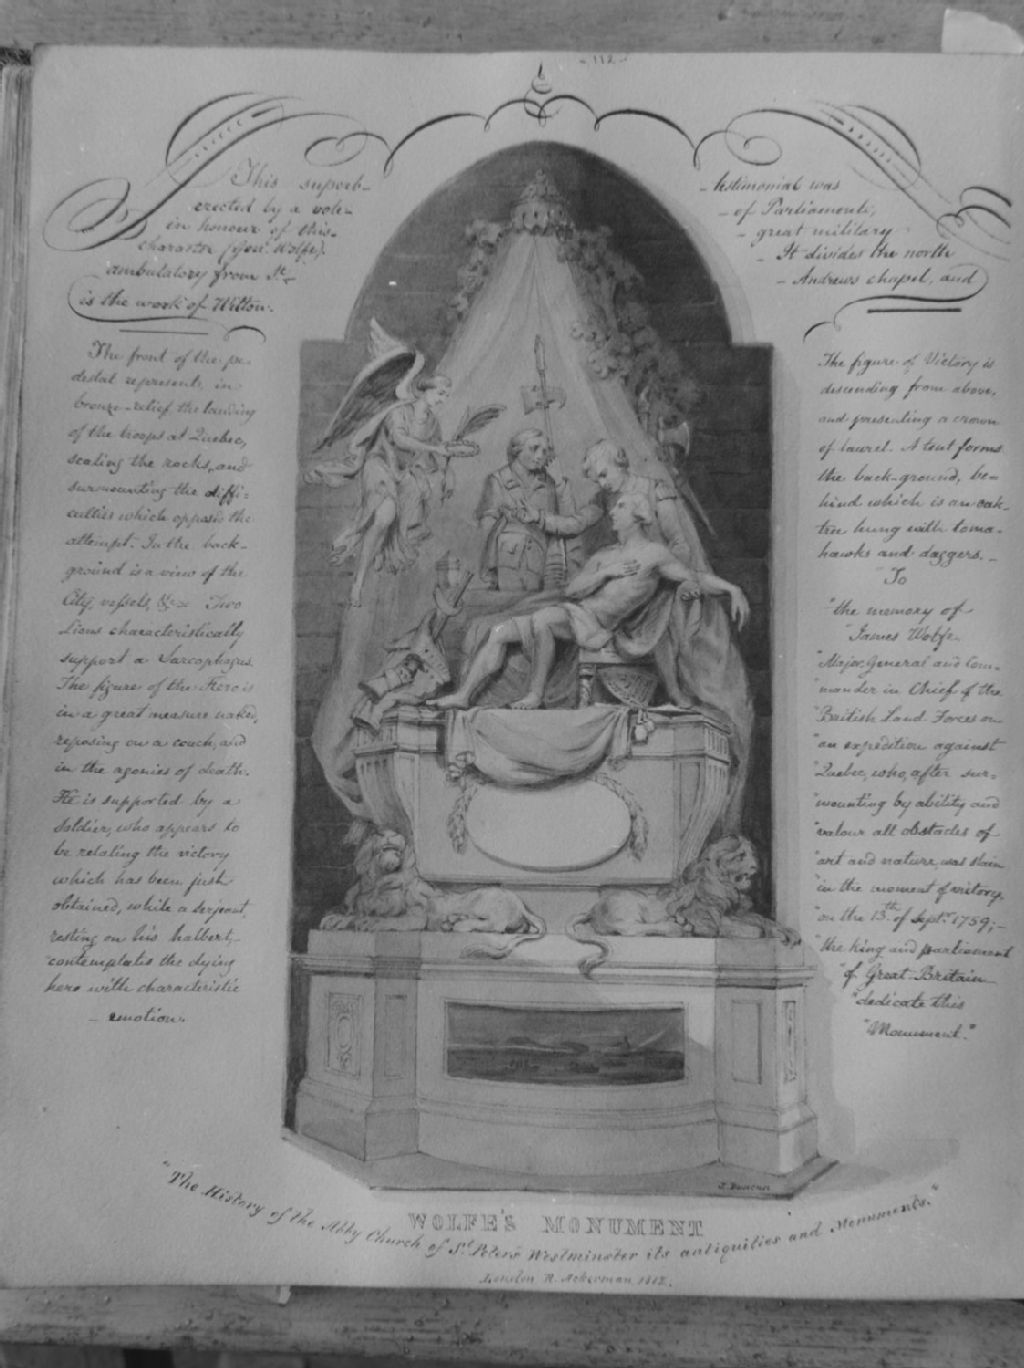 112
This superb-
erected by a vote-
in honour of this-
character (Genl. Wolfe).
ambulatory from St.
is the work of Wilton.
-testimonial was
-of Parliament;
-great military
-It divides the north
-Andrews chapel, and
The front of the pe-
destal represents, in
bronze-relief, the landing
of the troops at Quebec,
scaling the rocks, and
surmounting the diffi-
culties which oppose the
attempt. In the back-
ground is a view of the
City, vessels, &c= Two
Lions characteristically
support a Sarcophagus.
The figure of the Hero is
in a great measure naked,
reposing on a couch, and
in the agonies of death.
He is supported by a
Soldier, who appears to
be relating the victory
which has been just
obtained, while a serjeant,
resting on his halbert,
contemplates the dying
hero with characteristic
-emotion.
The figure of Victory is
descending from above,
and presenting a crown
of laurel. A tent forms
the back-ground, be-
hind which is an oak-
tree hung with toma-
hawks and daggers.-
"To
"the memory of
"James Wolfe
"Major General and Com-
"mander in Chief of the
"British Land Forces on
"an expedition against
"Quebec, who, after sur-
"mounting by ability and
"valour all obstacles of
"art and nature, was slain
"in the moment of victory,
"on the 13th of Septr. 1759;-
"the King and parliament
"of Great-Britain
"dedicate this
"Monument."
J. Duncan
WOLFE'S MONUMENT
"The History of the Abby Church of St. Peter's Westminster its antiquities and Monuments."
London R. Ackerman 1812.